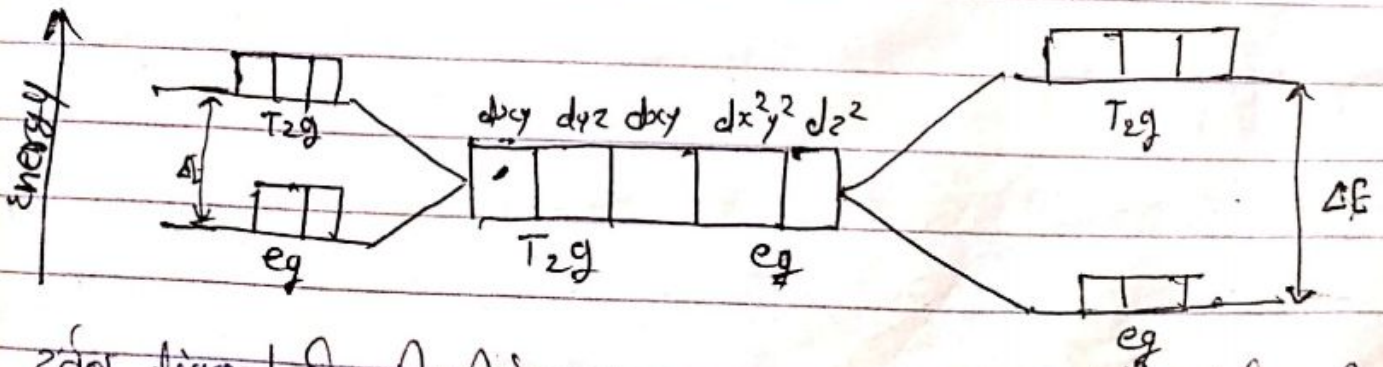 Energy
T2g
ΔE
eg
dxy dyz dxy dx²y² dz²
T2g eg
T2g
ΔE
eg